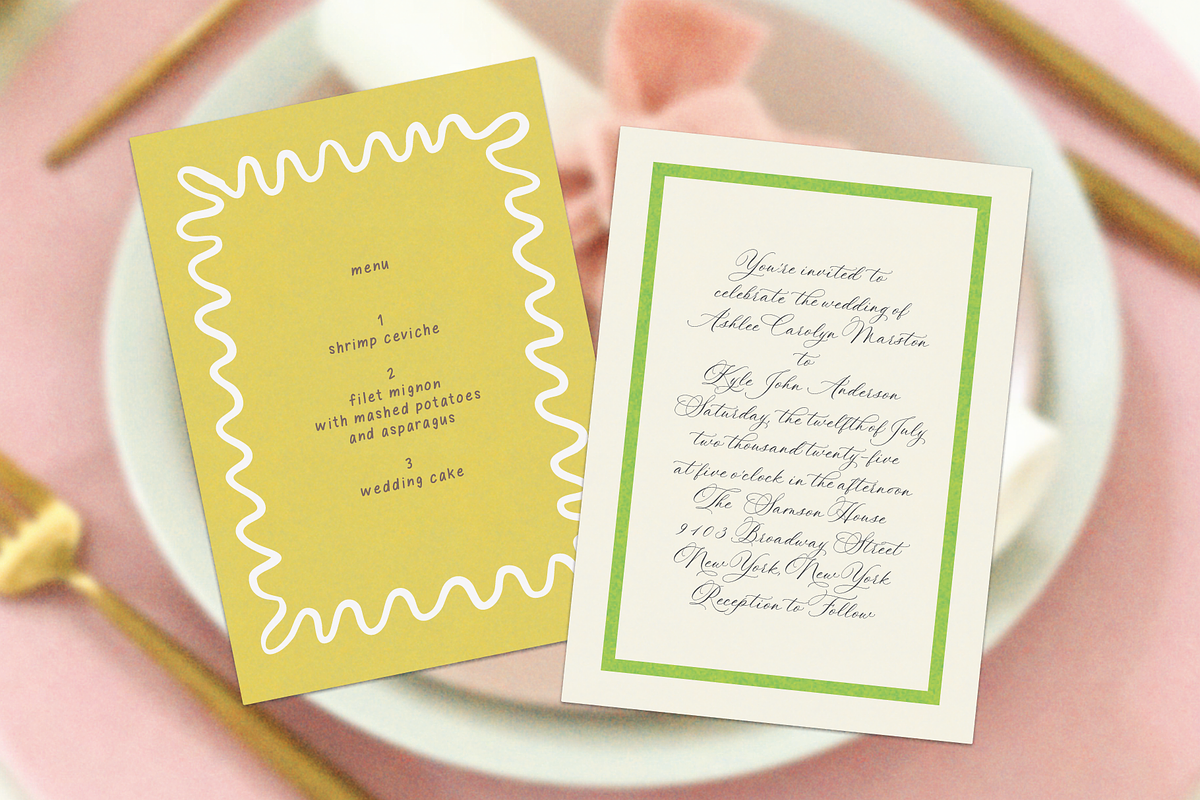 menu
1
shrimp ceviche
2
filet mignon
with mashed potatoes
and asparagus
3
wedding cake
You're invited to
celebrate the wedding of
Ashlee Carolyn Marston
to
Kyle John Anderson
Saturday, the twelfth of July
two thousand twenty-five
at five o'clock in the afternoon
The Samson House
9103 Broadway Street
New York, New York
Reception to Follow